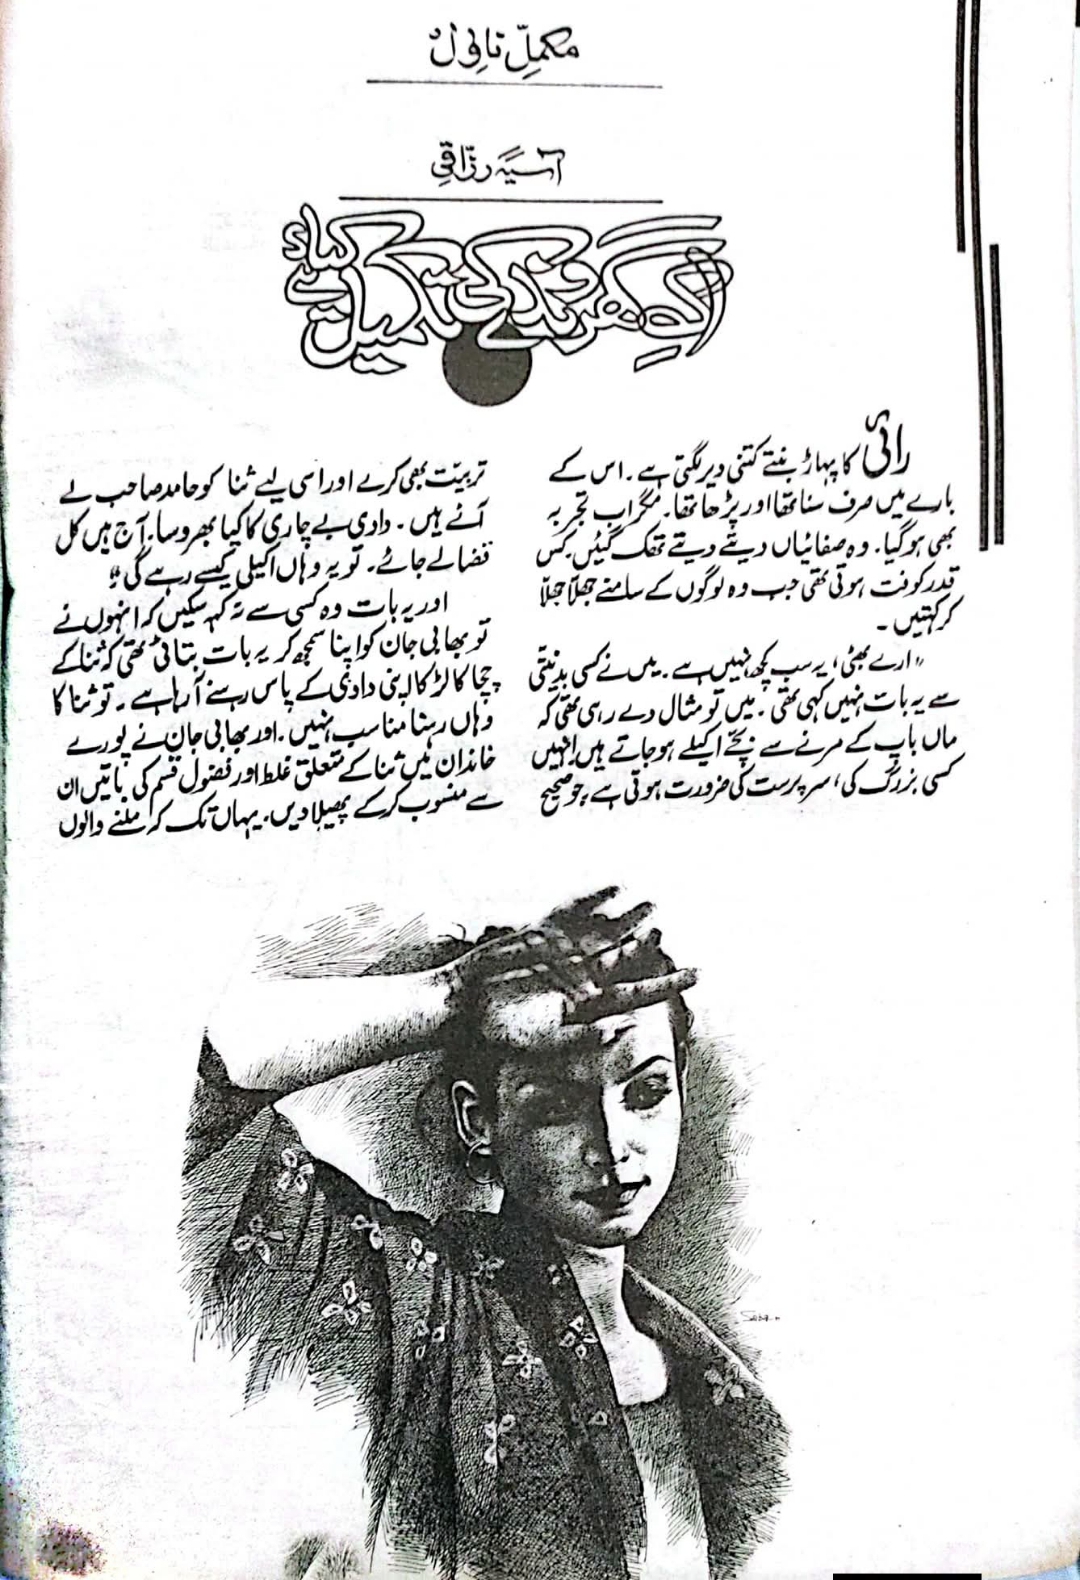 مکمل ناول
آسیہ رزاقی
اک گھروندے کی تکمیل کیلئے
رائی کا پہاڑ بنتے کتنی دیر لگتی ہے۔ اس کے
بارے میں صرف سنا تھا اور پڑھا تھا۔ مگر اب تجربہ
بھی ہوگیا۔ وہ صفائیاں دیتے دیتے تھک گئیں۔ کس
قدر کوفت ہوتی تھی جب وہ لوگوں کے سامنے جھلا جھلا
کر کہتیں۔
"ارے بھئی! یہ سب کچھ نہیں ہے۔ میں نے کسی بدنیتی
سے یہ بات نہیں کہی تھی۔ میں تو مثال دے رہی تھی کہ
ماں باپ کے مرنے سے بچے اکیلے ہو جاتے ہیں انہیں
کسی بزرگ کی، سرپرست کی ضرورت ہوتی ہے جو صحیح
تربیت بھی کرے اور اسی لیے ثنا کو حامد صاحب لے
آئے ہیں۔ دادی بے چاری کا کیا بھروسا، آج ہیں کل
قضا لے جائے۔ تو یہ وہاں اکیلی کیسے رہے گی"
اور یہ بات وہ کسی سے نہ کہہ سکیں کہ انہوں نے
تو بھابی جان کو اپنا سمجھ کر یہ بات بتائی تھی کہ ثنا کے
چچا کا لڑکا اپنی دادی کے پاس رہنے آرہا ہے۔ تو ثنا کا
وہاں رہنا مناسب نہیں۔ اور بھابی جان نے پورے
خاندان میں ثنا کے متعلق غلط اور فضول قسم کی باتیں ان
سے منسوب کرکے پھیلا دیں۔ یہاں تک کہ ملنے والوں